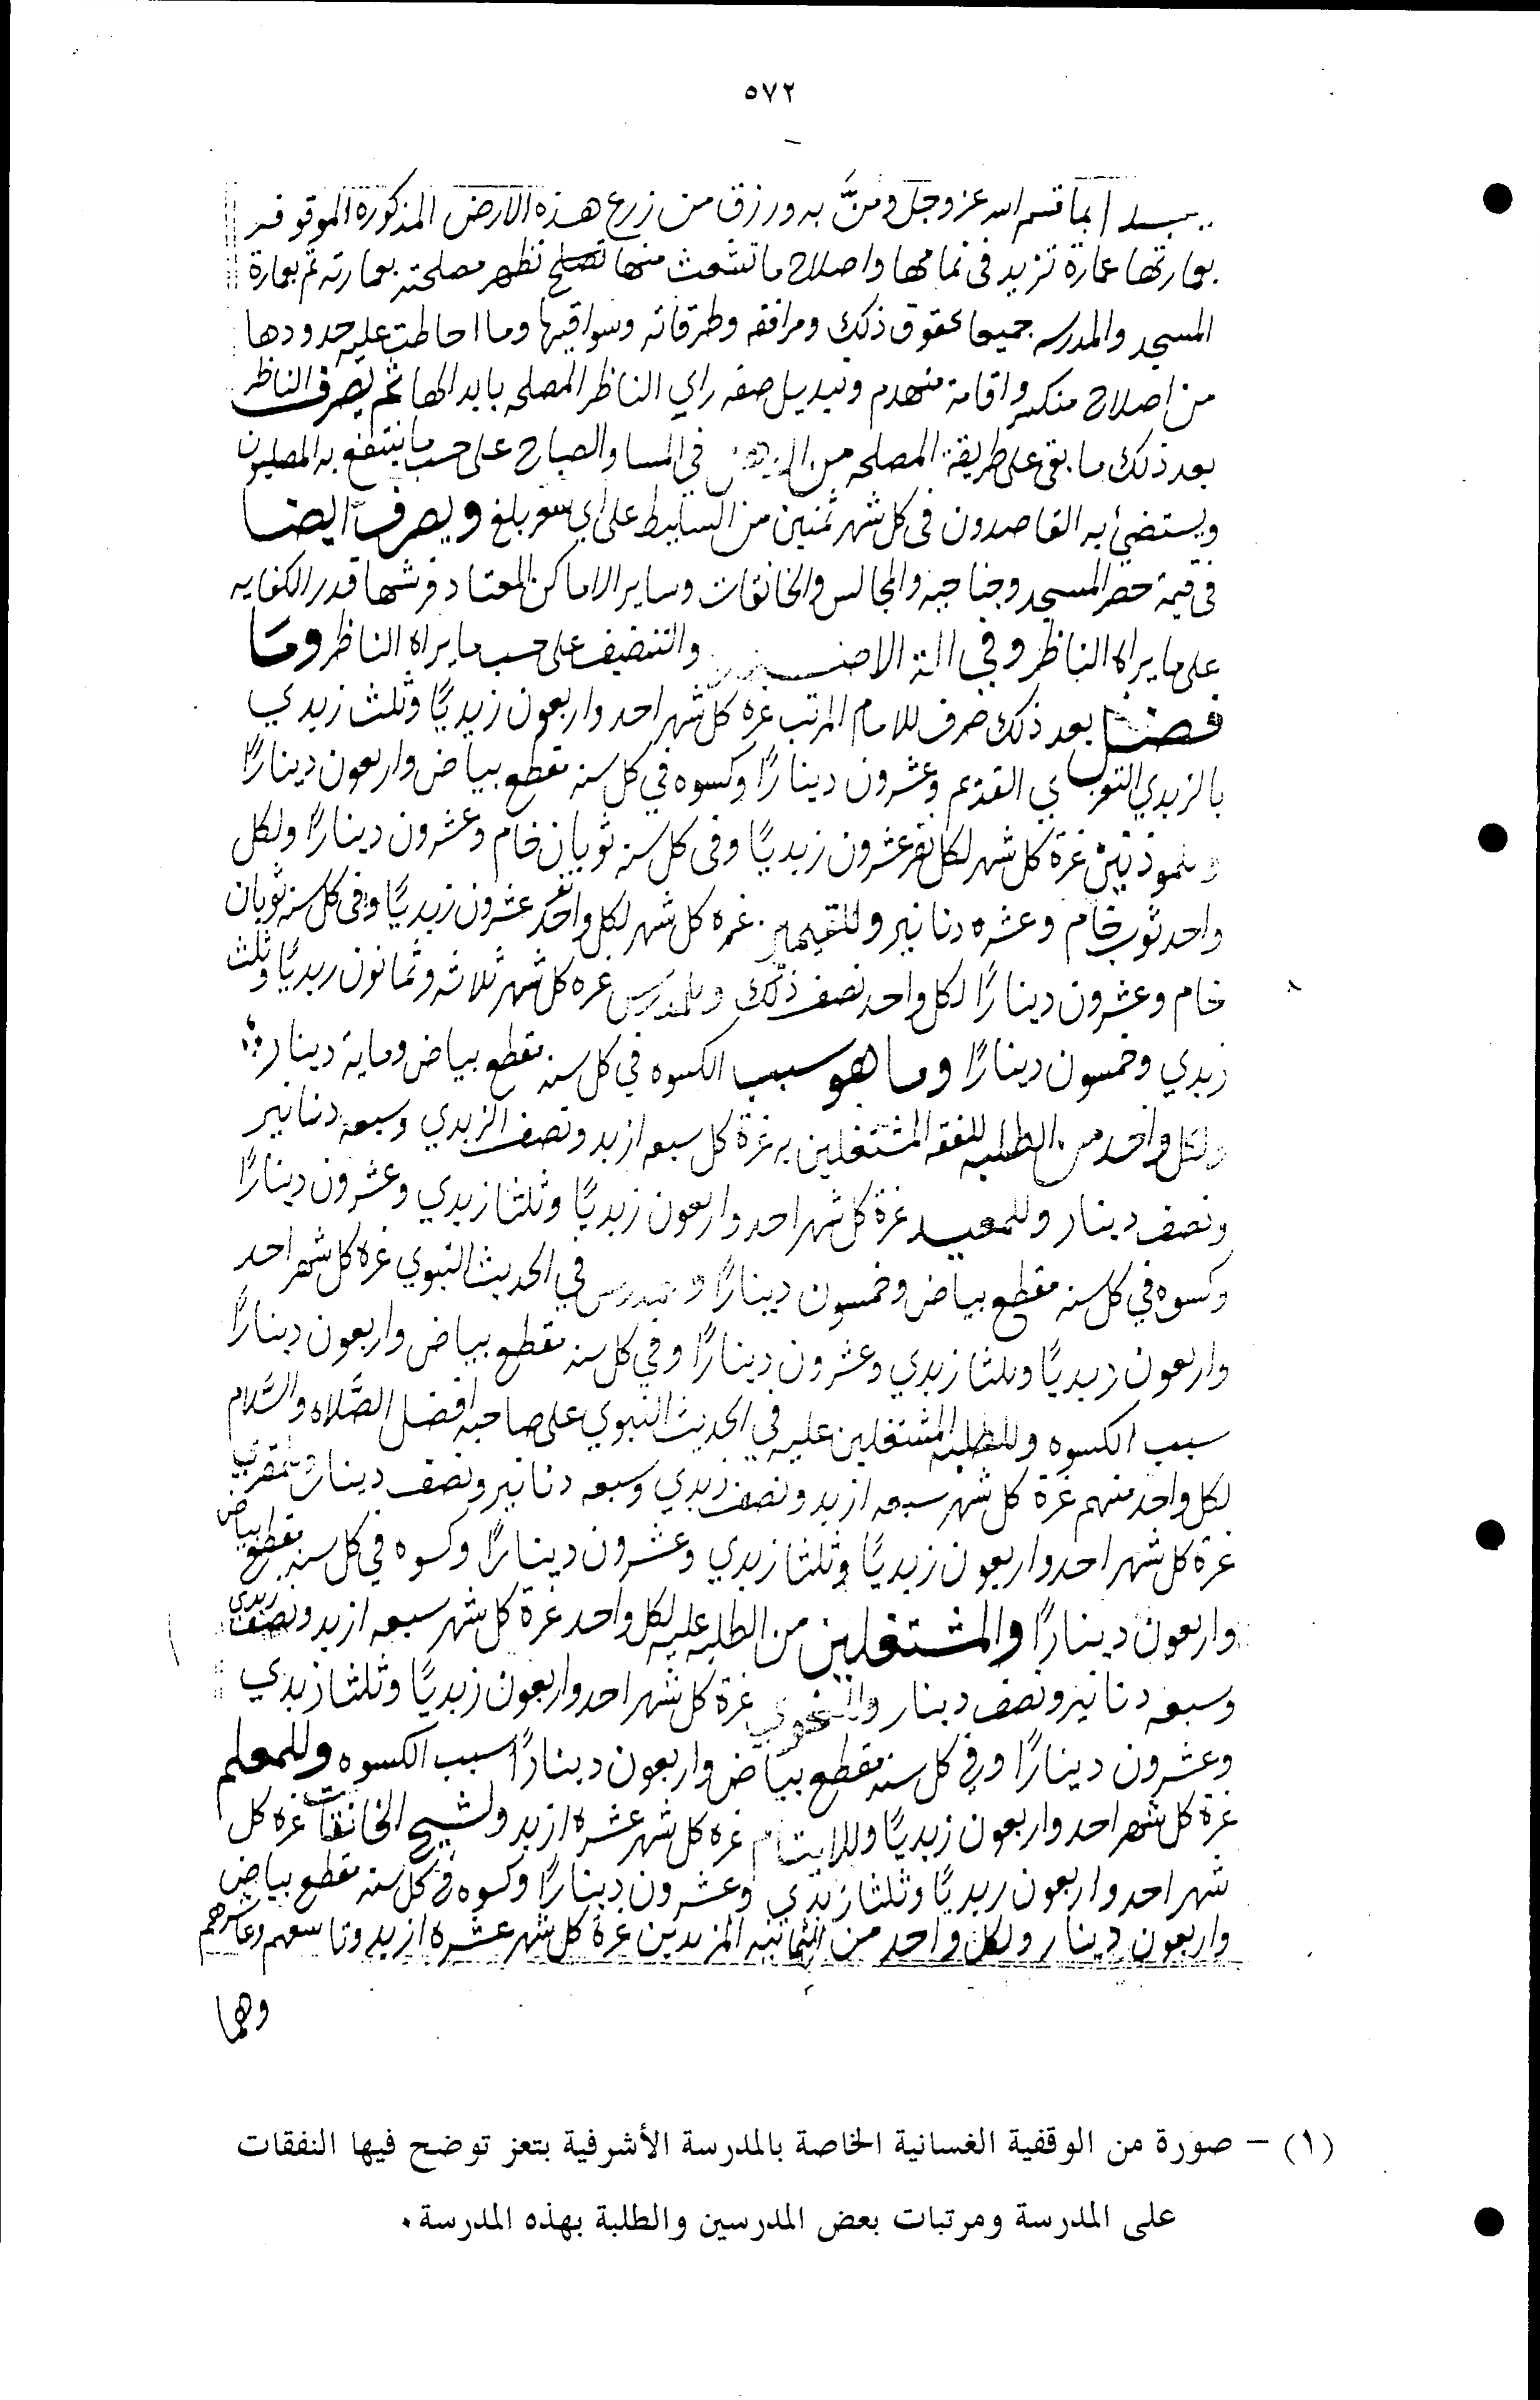 ٥٧٢
بما قسم الله عز وجل ومنَّ به ورزق من زرع هذه الارض المذكورة الموقوفه
بعمارتها عمارة تزيد فى نمائها واصلاح ما تشعث منها تظهر مصلحته بعمارته ثم بعمارة
المسجد والمدرسه جميعا بحقوق ذلك ومرافقه وطرقاته وسواقيها وما احاطت عليه حدودها
من اصلاح منكسر واقامة منهدم وتبديل صفه راي الناظر المصلحه بابدالها ثم يصرف الناظر
بعد ذلك ما بقى على طريقة المصلحه من في المسا والصباح على حسب ما ينتفع به المصليون
ويستضئ به القاصدون فى كل شهر ثمنين من السليط على اي سعر بلغ ويصرف ايضا
فى قيمة حصر المسجد وجناحيه والمجالس والخانقات وساير الاماكن المعتاد فرشها قدر الكفايه
على ما يراه الناظر وفي الة والتنضيف على حسب ما يراه الناظر وما
فضل بعد ذلك صرف للامام المرتب غرة كل شهر احد واربعون زبديًا وثلث زبدي
بالزبدي القديم وعشرون دينارًا وكسوه في كل سنه مقطع بياض واربعون دينارًا
غرة كل شهر لكل نفر عشرون زبديًا وفى كل سنه ثوبان خام وعشرون دينارًا ولكل
واحد ثوب خام وعشره دنانير وللقيمين غره كل شهر لكل واحد عشرون زبديًا وفى كل سنه ثوبان
خام وعشرون دينارًا لكل واحد نصف ذلك وللمدرس غره كل شهر ثلاثه وثمانون زبديًا وثلث
زبدي وخمسون دينارًا وما هو سبب الكسوه في كل سنه مقطع بياض وماية دينار
ولكل واحد من الطلبه للفقه المشتغلين به غرة كل سبعه ازبد ونصف الزبدي وسبعه دنانير
ونصف دينار وللمعيد غرة كل شهر احد واربعون زبديًا وثلثا زبدي وعشرون دينارًا
وكسوه في كل سنه مقطع بياض وخمسون دينارًا في الحديث النبوي غره كل شهر احد
واربعون زبديًا وثلثا زبدي وعشرون دينارًا وفي كل سنه مقطع بياض واربعون دينارًا
سبب الكسوه وللطلبه المشتغلين عليه في الحديث النبوي على صاحبه افضل الصَّلاه والسَّلام
لكل واحد منهم غرة كل شهر سبعه ازبد ونصف زبدي وسبعه دنانير ونصف دينار
غرة كل شهر احد واربعون زبديًا وثلثا زبدي وعشرون دينارًا وكسوه في كل سنه مقطع بياض
واربعون دينارًا والمشتغلين من الطلبه عليه لكل واحد غرة كل شهر سبعه ازبد ونصف زبدي
وسبعه دنانير ونصف دينار غرة كل شهر احد واربعون زبديًا وثلثا زبدي
وعشرون دينارًا وفي كل سنه مقطع بياض واربعون دينارًا سبب الكسوه وللمعلم
غرة كل شهر احد واربعون زبديًا وللايتام غره كل شهر عشره ازبد ولشيخ الخانقات غره كل
شهر احد واربعون زبديًا وثلثا زبدي وعشرون دينارًا وكسوه فى كل سنه مقطع بياض
واربعون دينار ولكل واحد من الثمانيه المزيدين غرة كل شهر عشره ازبد وتاسعهم وعاشرهم
وهما
(١) – صورة من الوقفية الغسانية الخاصة بالمدرسة الأشرفية بتعز توضح فيها النفقات
على المدرسة ومرتبات بعض المدرسين والطلبة بهذه المدرسة.